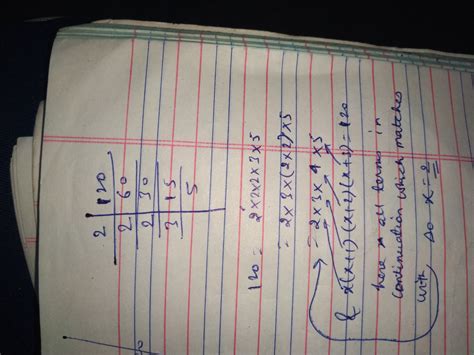 2 | 120
2 | 60
2 | 30
3 | 15
5
120 = 2×2×2×3×5
= 2×3×(2×2)×5
= 2×3×4×5
& x(x+1)(x+2)(x+3)=120
here all terms in
continuation which matches
with so x=2